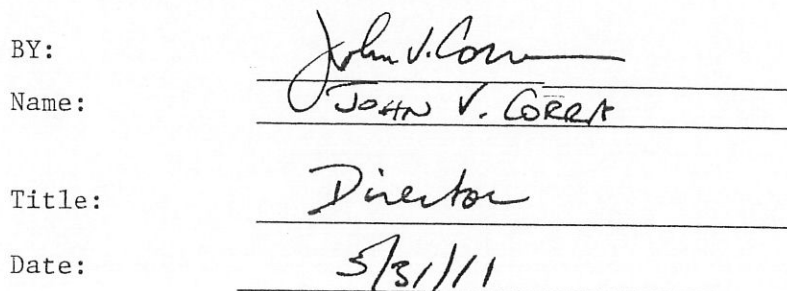 BY: John V. Corra
Name: JOHN V. CORRA
Title: Director
Date: 5/31/11